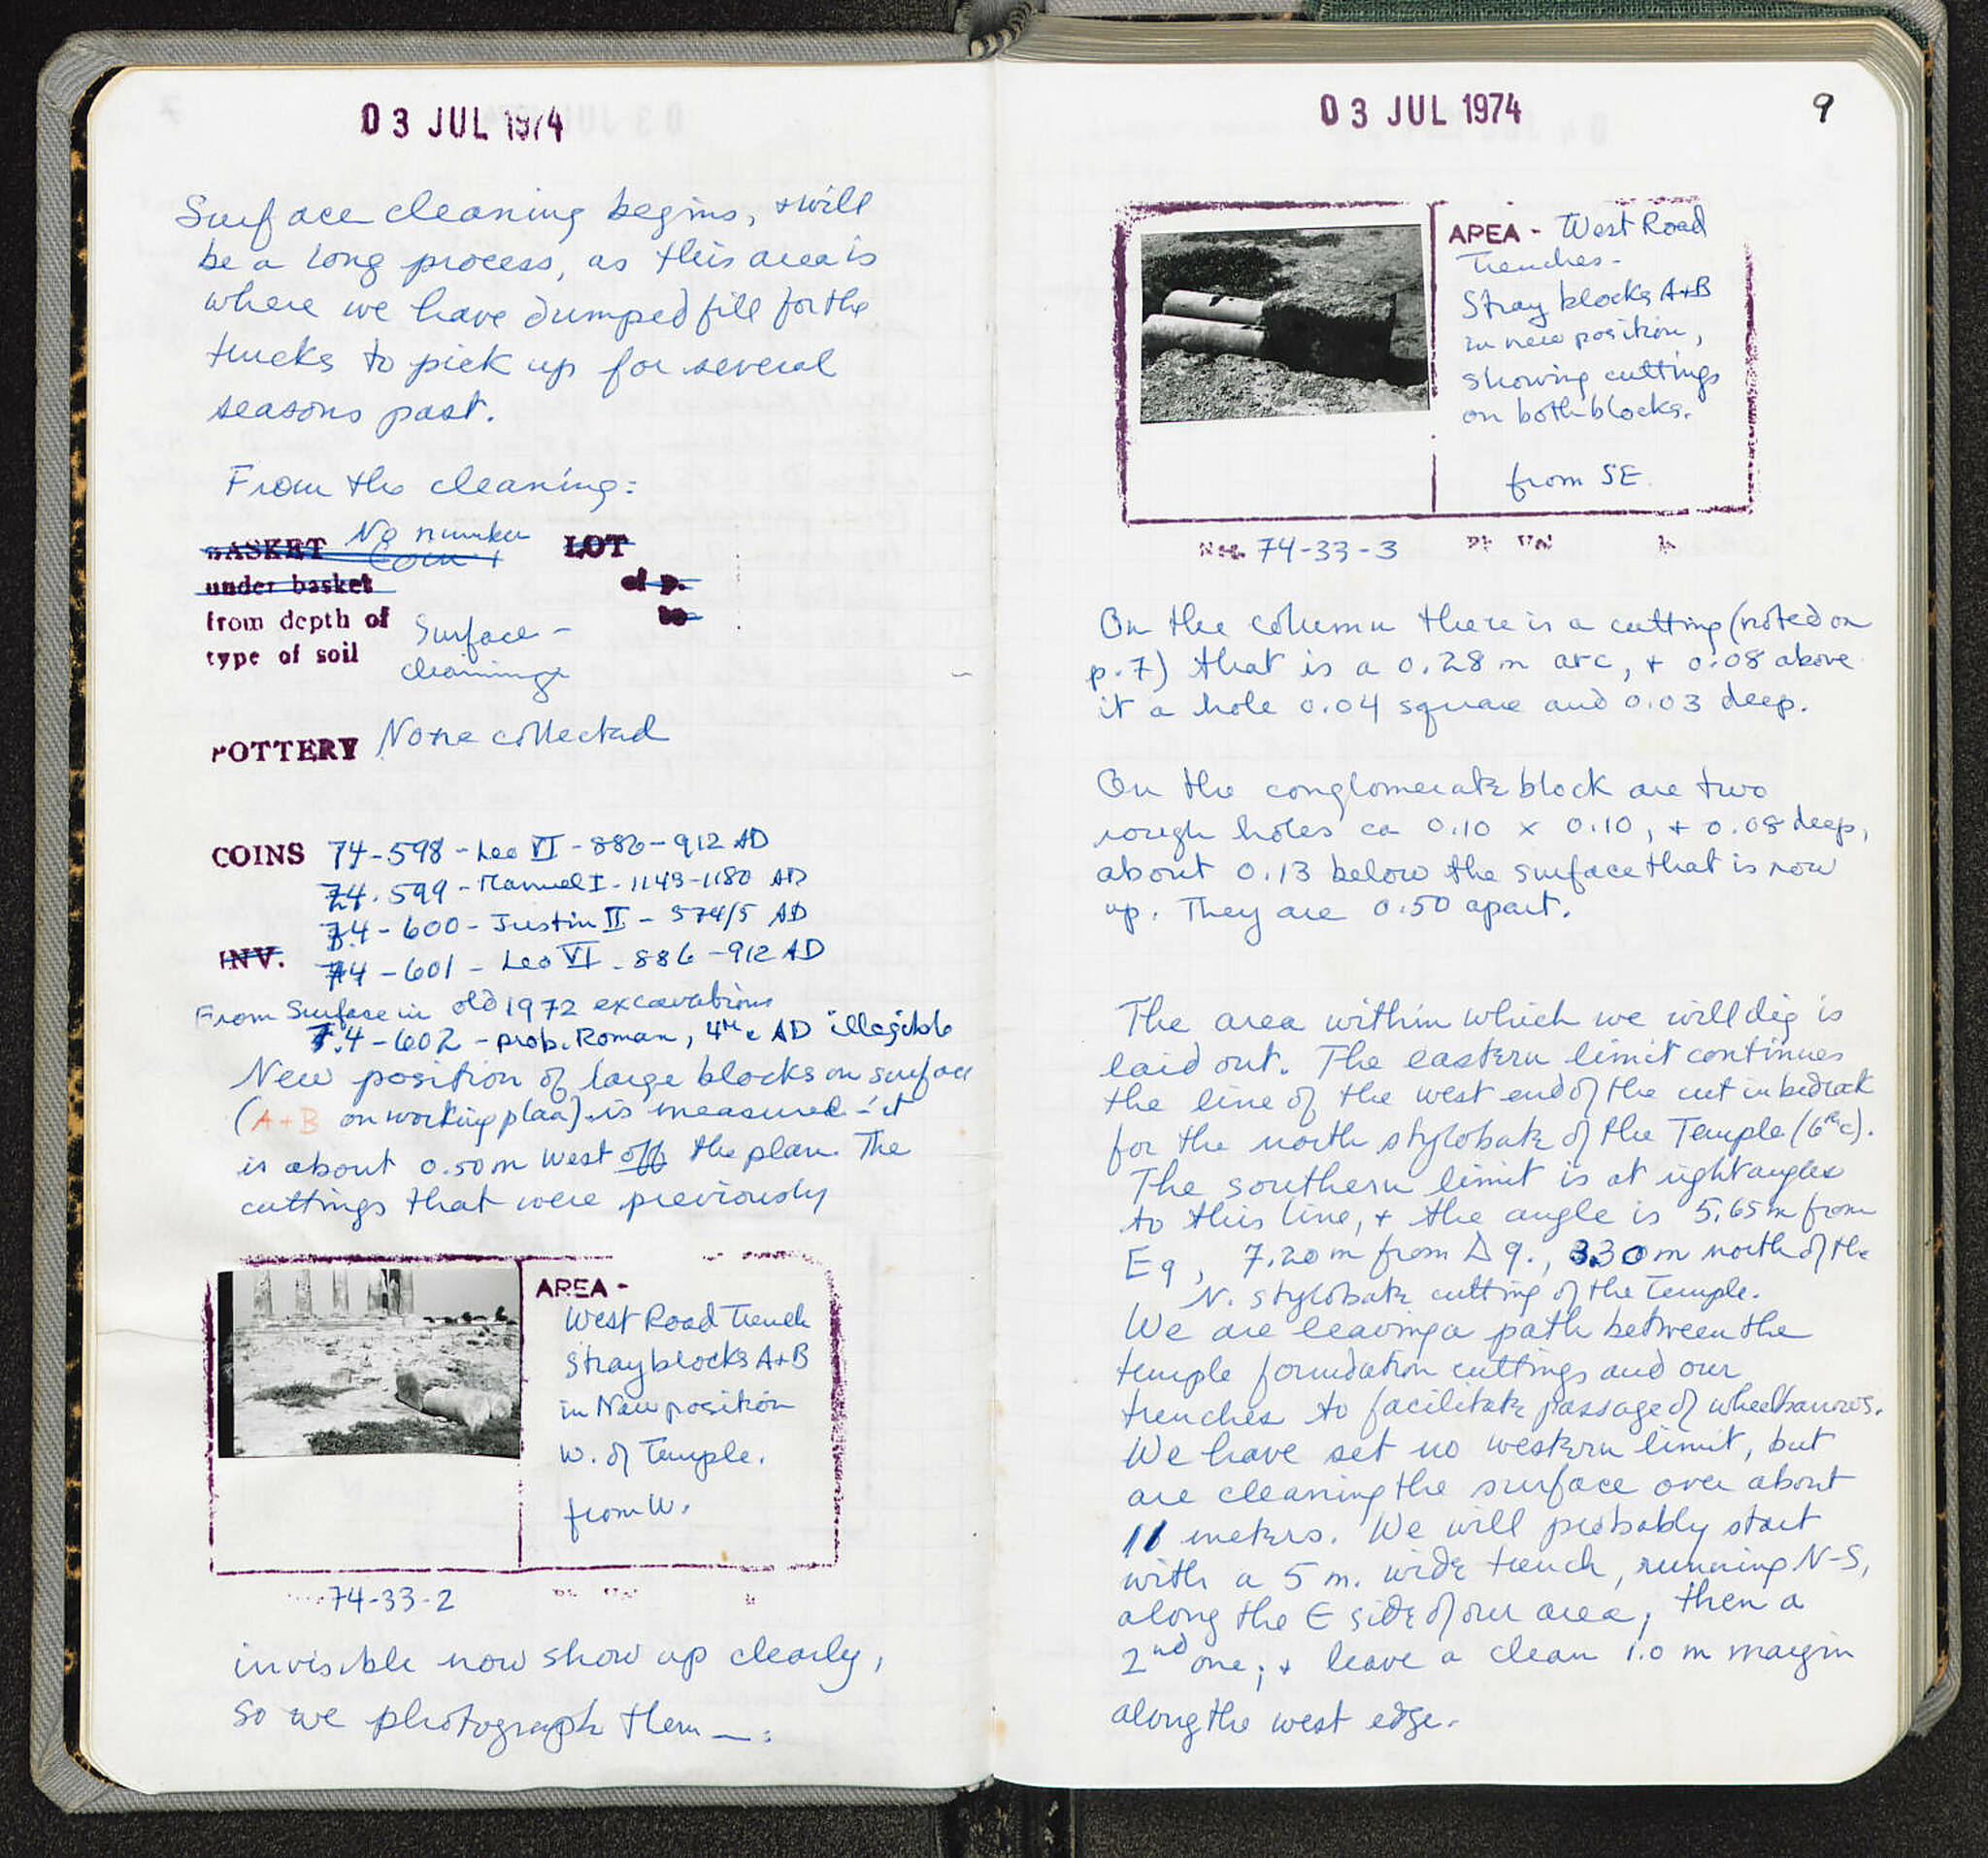 03 JUL 1974
Surface cleaning begins, + will
be a long process, as this area is
where we have dumped fill for the
trucks to pick up for several
seasons past.
From the cleaning:
BASKET No number LOT
under basket of p.
from depth of Surface -
type of soil cleaning
POTTERY None collected
COINS 74-598 - Leo VI - 886-912 AD
74-599 - Manuel I - 1143-1180 AD
74-600 - Justin II - 574/5 AD
INV. 74-601 - Leo VI - 886-912 AD
From Surface in old 1972 excavations
74-602 - prob. Roman, 4th c AD illegible
New position of large blocks on surface
(A+B on working plan) is measured - it
is about 0.50m West off the plan. The
cuttings that were previously
AREA -
West Road Trench
Stray blocks A+B
in New position
W. of Temple.
from W.
74-33-2
invisible now show up clearly,
so we photograph them - :
03 JUL 1974
9
AREA - West Road
Trenches -
Stray blocks A+B
in new position,
showing cuttings
on both blocks.
from SE.
Neg. 74-33-3
On the column there is a cutting (noted on
p. 7) that is a 0.28 m arc, + 0.08 above
it a hole 0.04 square and 0.03 deep.
On the conglomerate block are two
rough holes ca 0.10 x 0.10, + 0.08 deep,
about 0.13 below the surface that is now
up. They are 0.50 apart.
The area within which we will dig is
laid out. The eastern limit continues
the line of the west end of the cut in bedrock
for the north stylobate of the Temple (6th c).
The southern limit is at right angles
to this line, + the angle is 5.65 m from
E9, 7.20 m from Δ 9., 3.30 m north of the
N. stylobate cutting of the Temple.
We are leaving a path between the
temple foundation cuttings and our
trenches to facilitate passage of wheelbarrows.
We have set no western limit, but
are cleaning the surface over about
11 meters. We will probably start
with a 5 m. wide trench, running N-S,
along the E side of our area, then a
2nd one, + leave a clean 1.0 m margin
along the west edge.